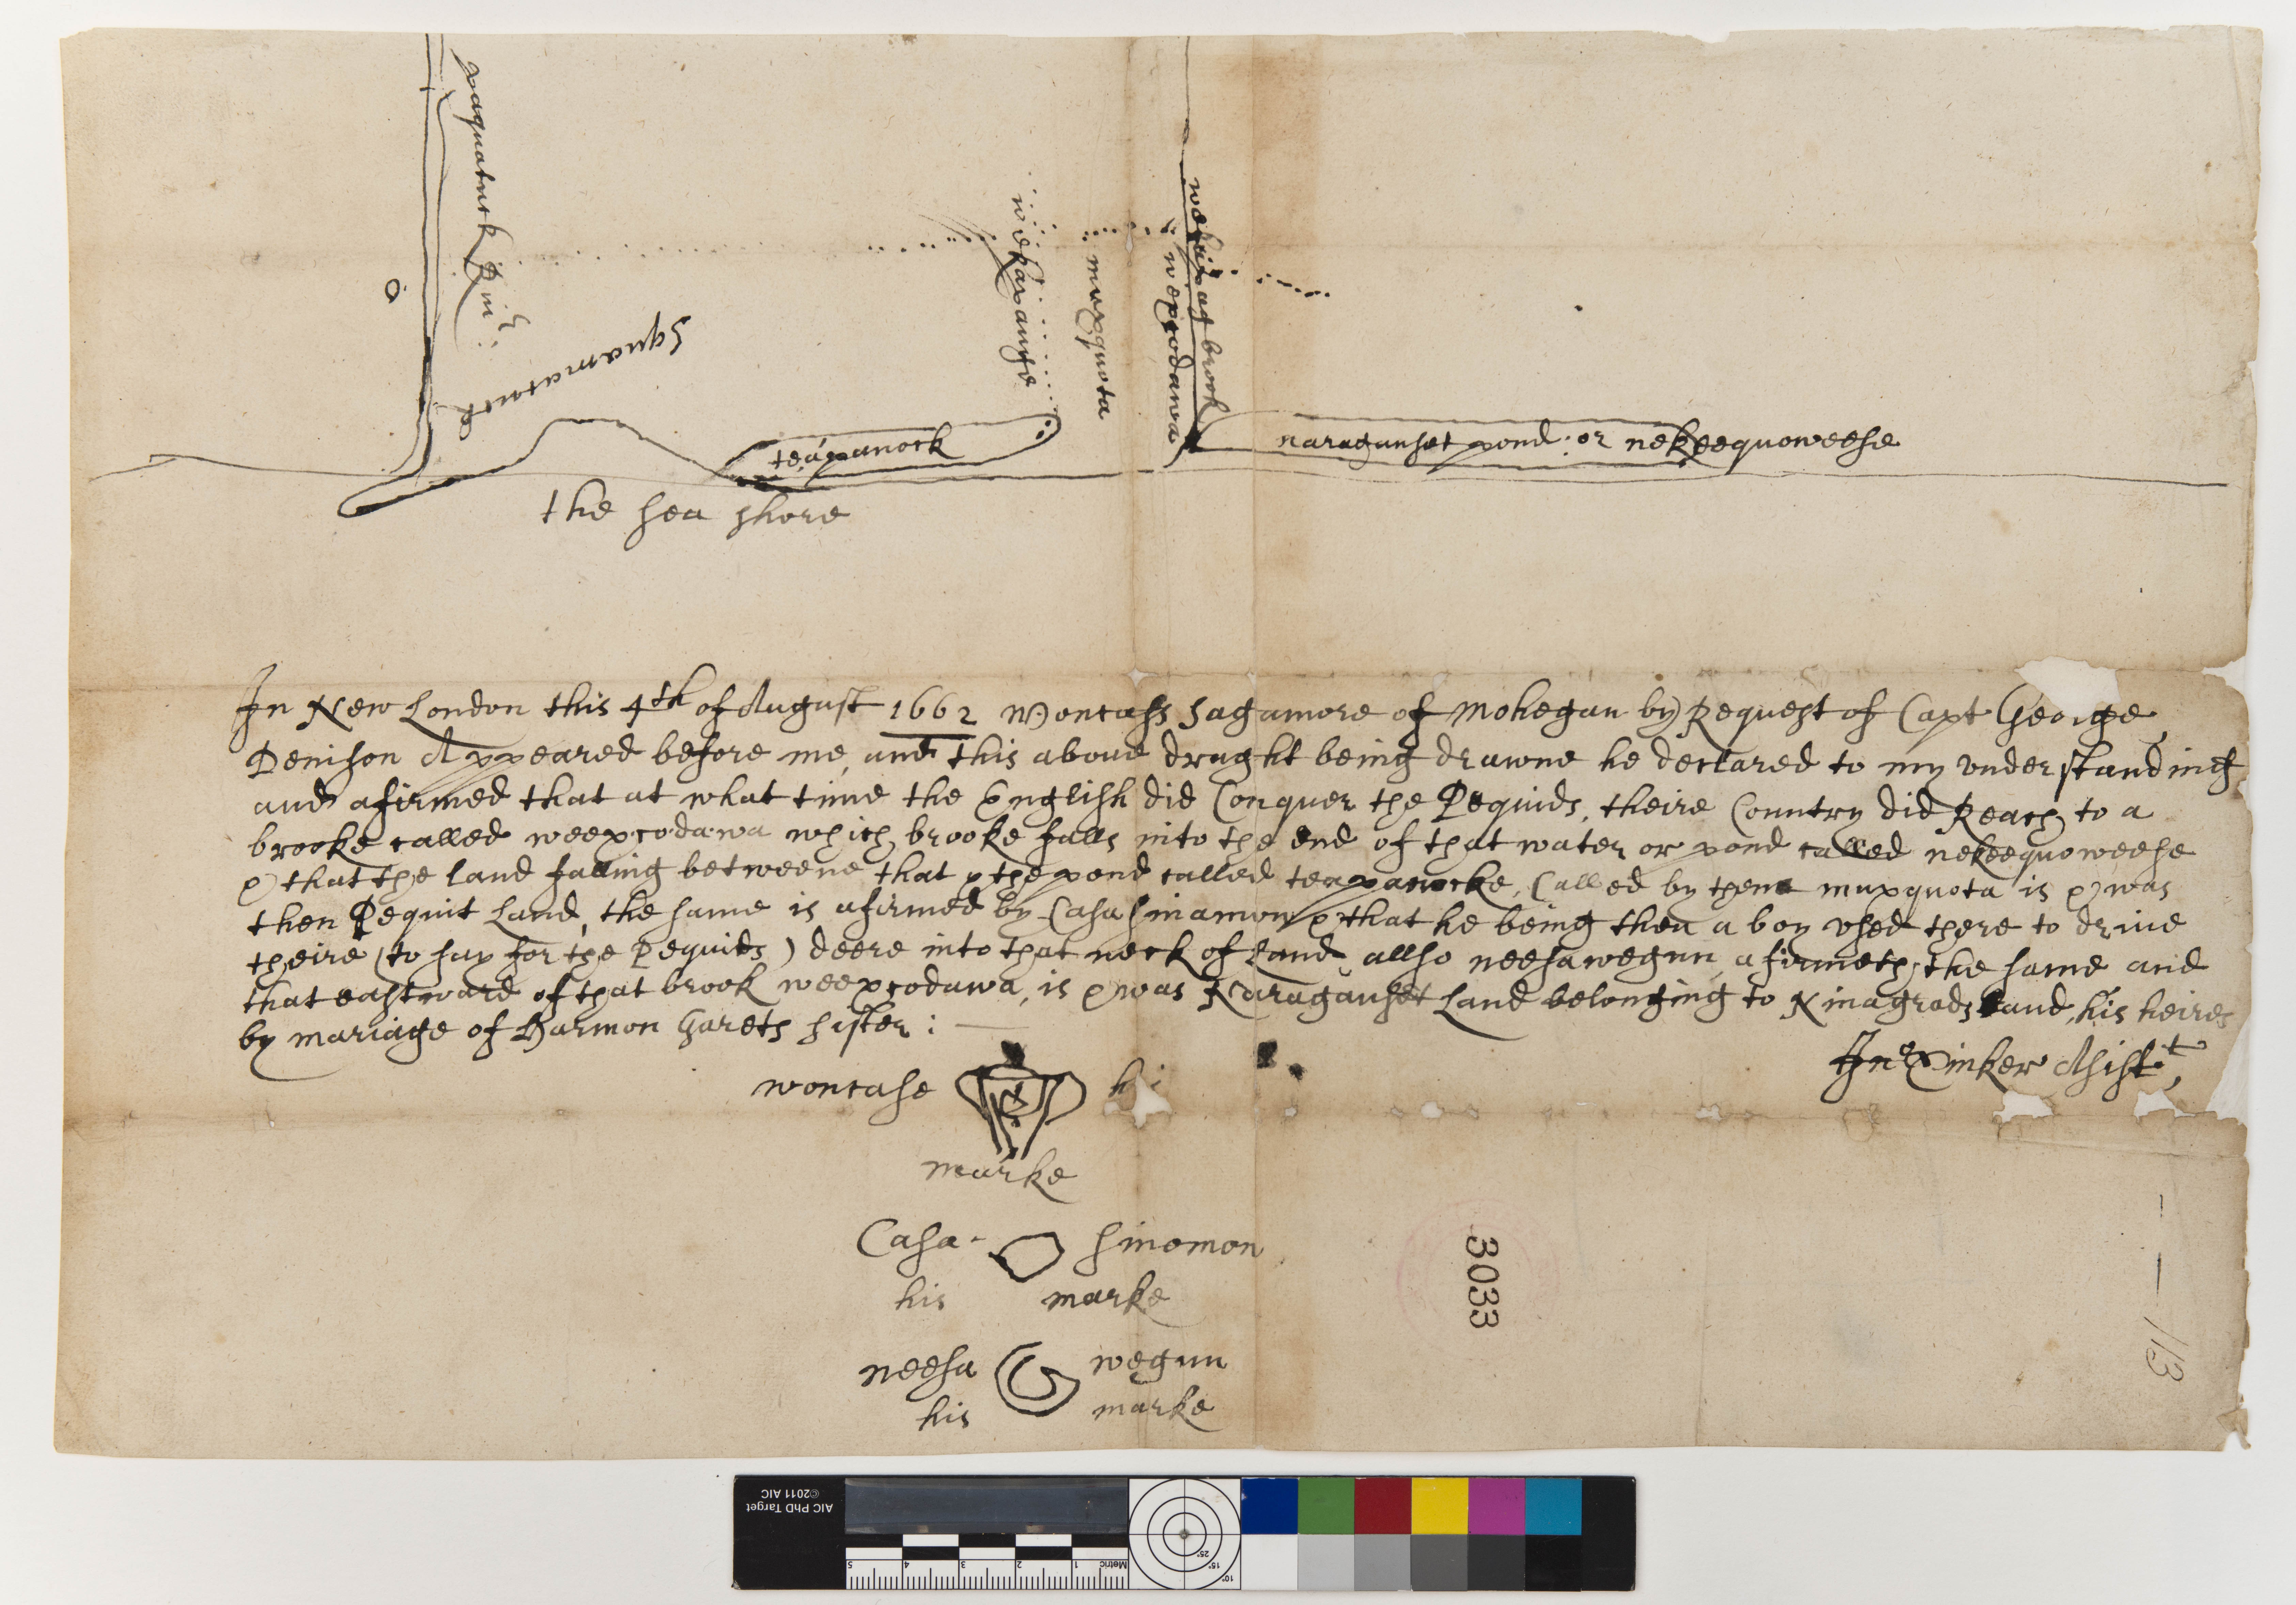 paquatuck Riu:
Squamatuck
wekapauge
muxquota
weexcodawa
wekapag brook
teapanock
naraganset pond: or nekeequoweese
the sea shore
In New London this 4th of August 1662 Woncass Sagamore of Mohegan by Request of Capt George
Denison Appeared before me, and this aboue draght being drawne he declared to my vnderstanding
and afirmed that at what time the English did Conquer the Pequids, theire Country did Reach to a
brooke called weexcodawa which brooke falls into the end of that water or pond called nekeequoweese
& that the land falling betweene that & the pond called teapanocke, Called by them muxquota is & was
then Pequit Land, the same is afirmed by Casasinamon & that he being then a boy vsed there to driue
theire (to say for the pequids) deere into that neck of Land, allso neesawegun afirmeth the same and
that eastward of that brook weexcodawa, is & was Naraganset Land belonging to Ninagrads and his heires
by mariage of Harmon Garets sister:
Jno Tinker Asist
woncase
marke
Casa- sinomon
his marke
neesa wegun
his marke
3033
113
AIC PhD Target
©2011 AIC
5 4 3 2 1 Metric
25° 15° 10°